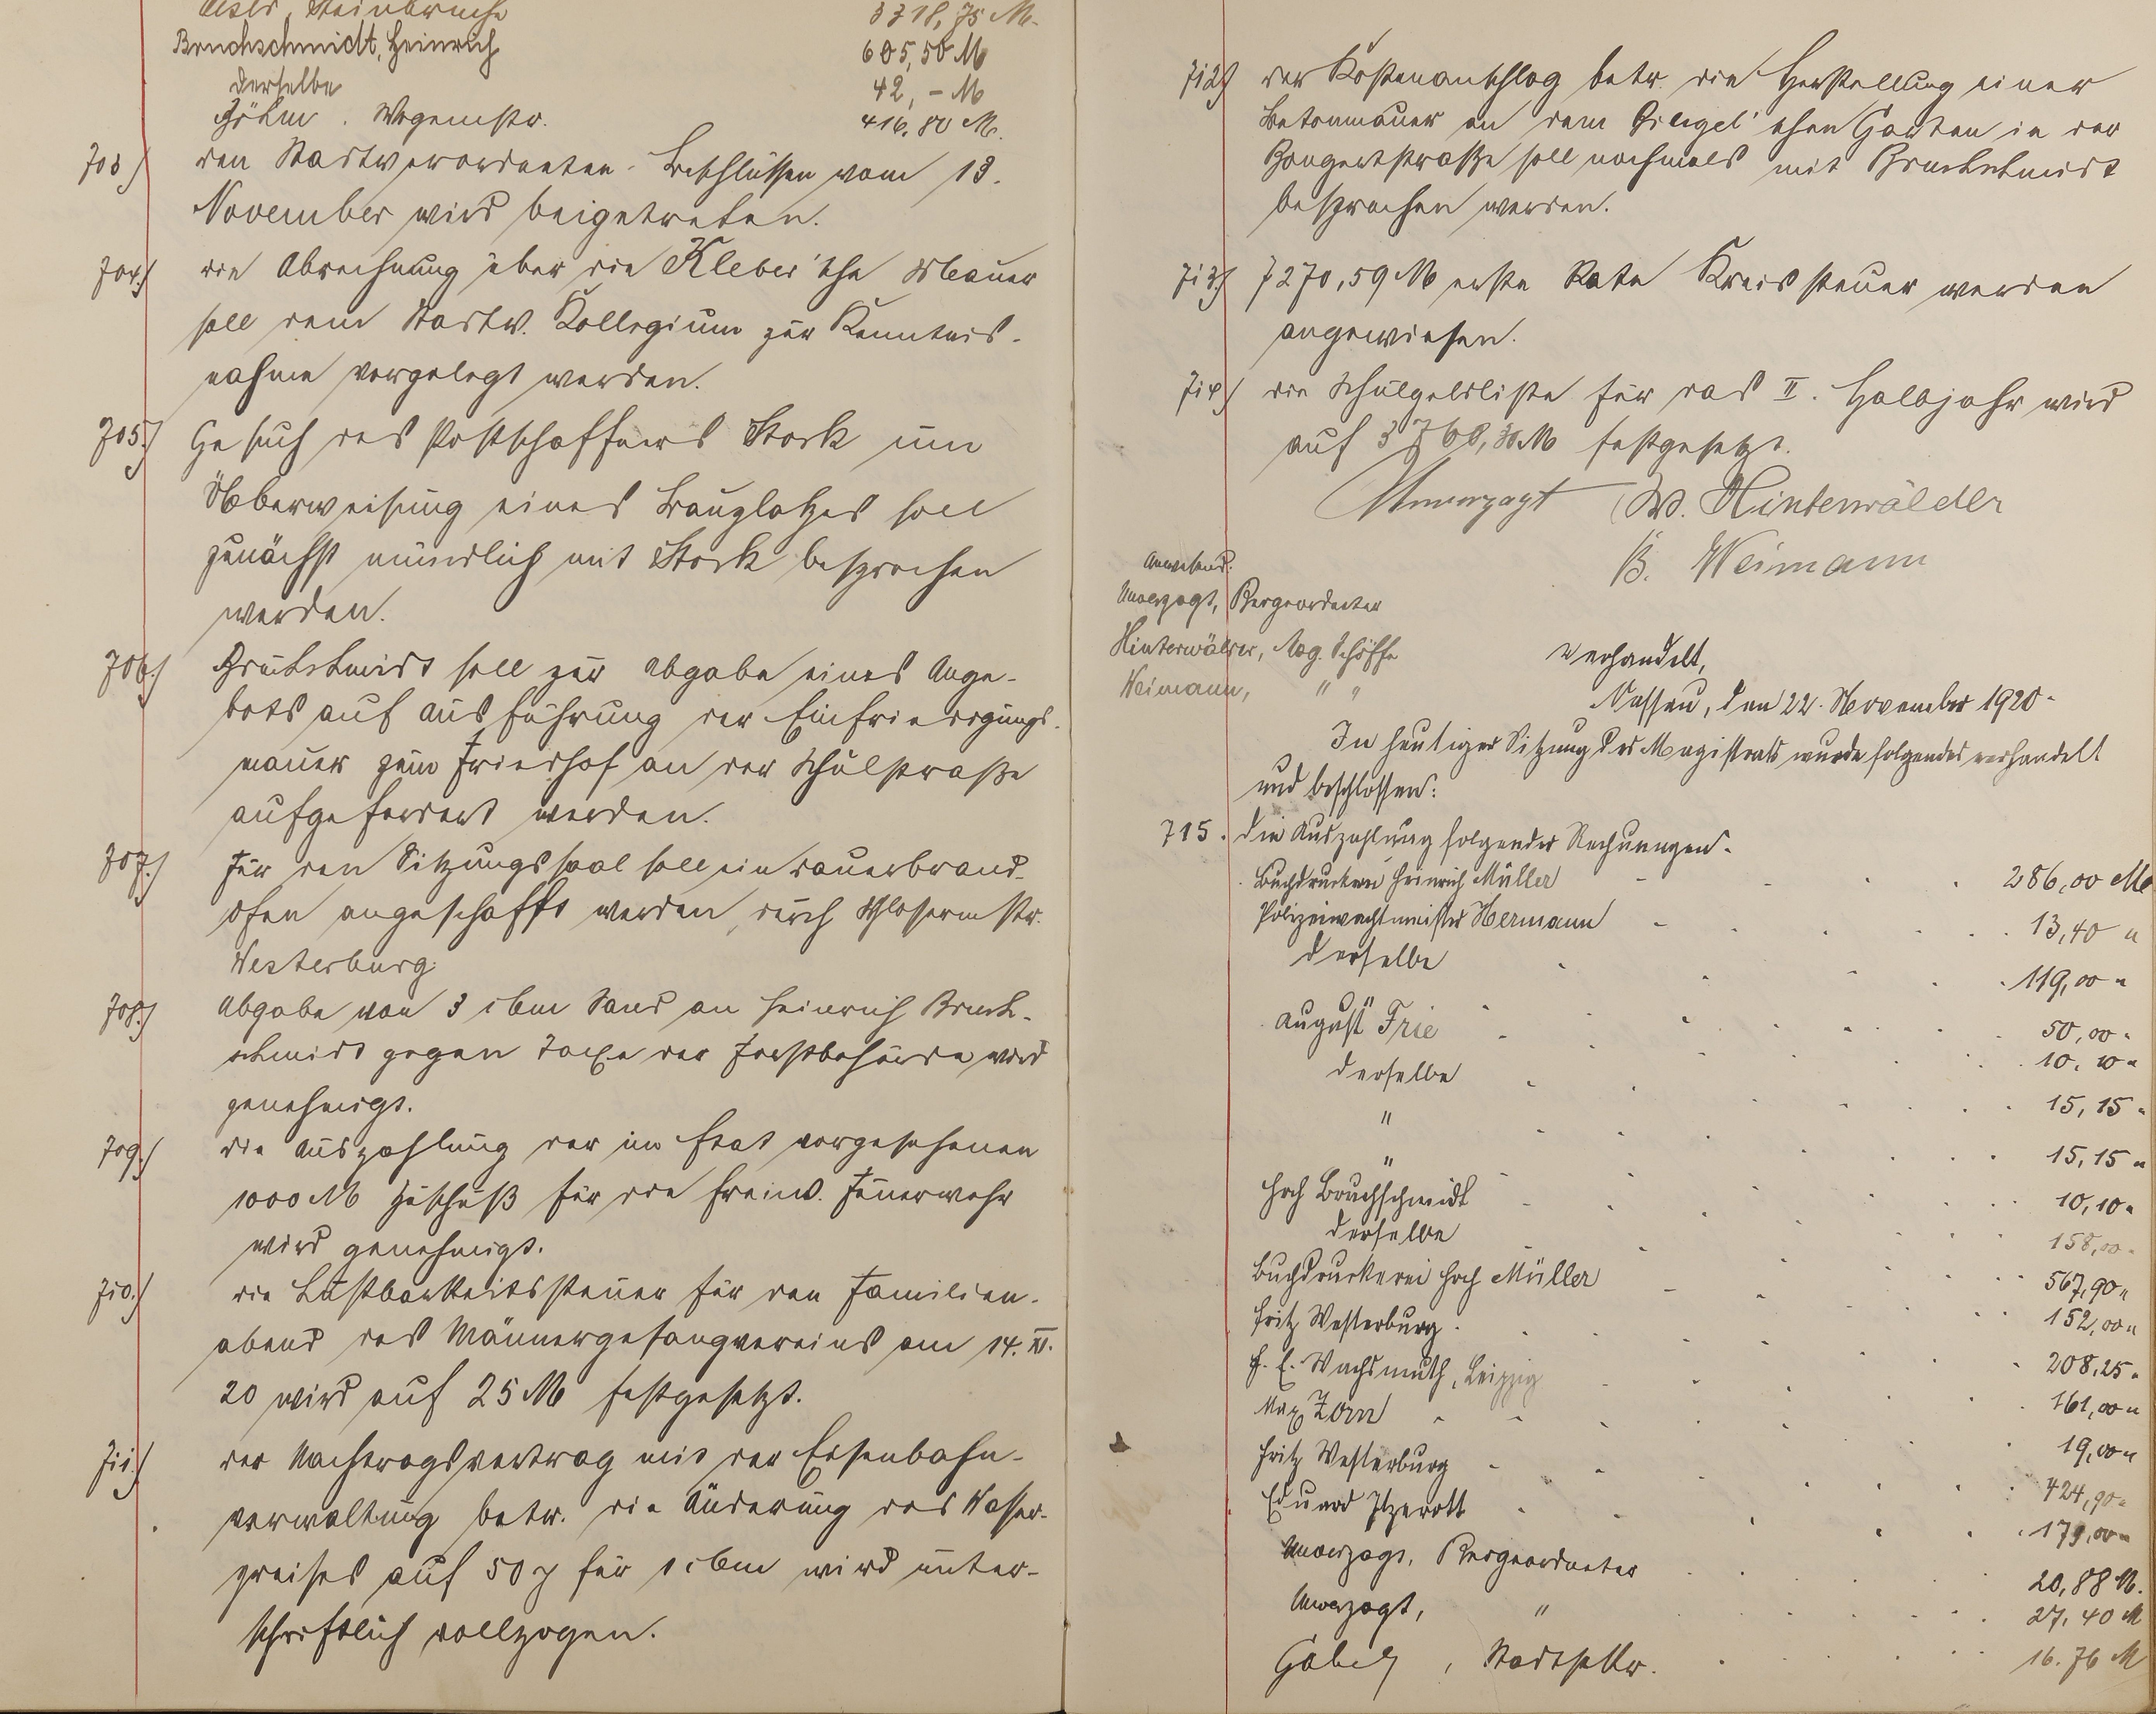 Steinbrüche 3318,75 M.
Bruchschmidt, Heinrich 605,50 M
derselbe 42,- M
Böhm. Wagenmstr. 416,80 M.
703.) den Stadtverordneten-Beschlüssen vom 13.
November wird beigetreten.
704.) die Abrechnung über die Kleber'sche Mauer
soll dem Stadtv. Kollegium zur Kenntnis-
nahme vorgelegt werden.
705.) Gesuch des Postschaffners Stork um
Überweisung eines Bauplatzes soll
zunächst mündlich mit Stork besprochen
werden.
706.) Bruchschmidt soll zur Abgabe eines Ange-
bots auf Ausführung der Einfriedigungs-
mauer zum Friedhof an der Schulstraße
aufgefordert werden.
707.) Für den Sitzungssaal soll ein Dauerbrand-
ofen angeschafft werden, durch Schlosermstr.
Westerburg.
708.) Abgabe von 3 cbm Sand an Heinrich Bruch-
schmidt gegen Taxe der Forstbehörde wird
genehmigt.
709.) die Auszahlung der im Etat vorgesehenen
1000 M Zuschuß für die freiw. Feuerwehr
wird genehmigt.
710.) die Lustbarkeitssteuer für den Familien-
abend des Männergesangvereins am 14. XI.
20 wird auf 25 M festgesetzt.
711.) der Nachtragsvertrag mit der Eisenbahn-
verwaltung betr. die Änderung des Wasser-
preises auf 50 ₰ für 1 cbm wird unter-
schriftlich vollzogen.
712.) der Kostenanschlag betr. die Herstellung einer
Betonmauer an dem schen Garten in der
Bongertstraße soll nochmals mit Bruchschmidt
besprochen werden.
713.) 7270,59 M erste Rate Kreissteuer werden
angewiesen.
714.) die Schulgeldliste für das II. Halbjahr wird
auf 3760,30 M festgesetzt.
Unverzagt W. Hinterwälder
B. Weimann
Anwesend:
Unverzagt, Beigeordneter
Hinterwälder, Mag. Schöffe
Weimann, " "
Verhandelt,
Nassau, den 22. November 1920.
In heutiger Sitzung des Magistrats wurde folgendes verhandelt
und beschlossen:
715. Die Auszahlung folgender Rechnungen.
Buchdruckerei Heinrich Müller 286,00 M
Polizeiwachtmeister Hermann 13,40 "
derselbe 119,00 "
August Frie 50,00 "
derselbe 10,10 "
" 15,15 "
" 15,15 "
Hch Bruchschmidt 10,10 "
derselbe 158,00 "
Buchdruckerei Hch Müller 567,90 "
Fritz Westerburg 152,00 "
F. E. Wachsmuth, Leipzig 208,25 "
Max Zorn 161,00 "
Fritz Westerburg 19,00 "
Eduard Itzerott 424,90 "
179,00 "
Unverzagt, Beigeordneter 20,88 M.
Unverzagt, " 27,40 M
Göbel, Stadtsekr. 16.76 M